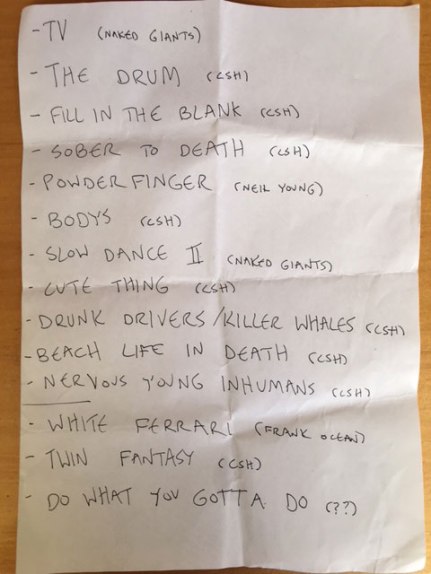 - TV (NAKED GIANTS)
- THE DRUM (CSH)
- FILL IN THE BLANK (CSH)
- SOBER TO DEATH (CSH)
- POWDERFINGER (NEIL YOUNG)
- BODYS (CSH)
- SLOW DANCE II (NAKED GIANTS)
- CUTE THING (CSH)
- DRUNK DRIVERS/KILLER WHALES (CSH)
- BEACH LIFE IN DEATH (CSH)
- NERVOUS YOUNG INHUMANS (CSH)
- WHITE FERRARI (FRANK OCEAN)
- TWIN FANTASY (CSH)
- DO WHAT YOU GOTTA DO (??)